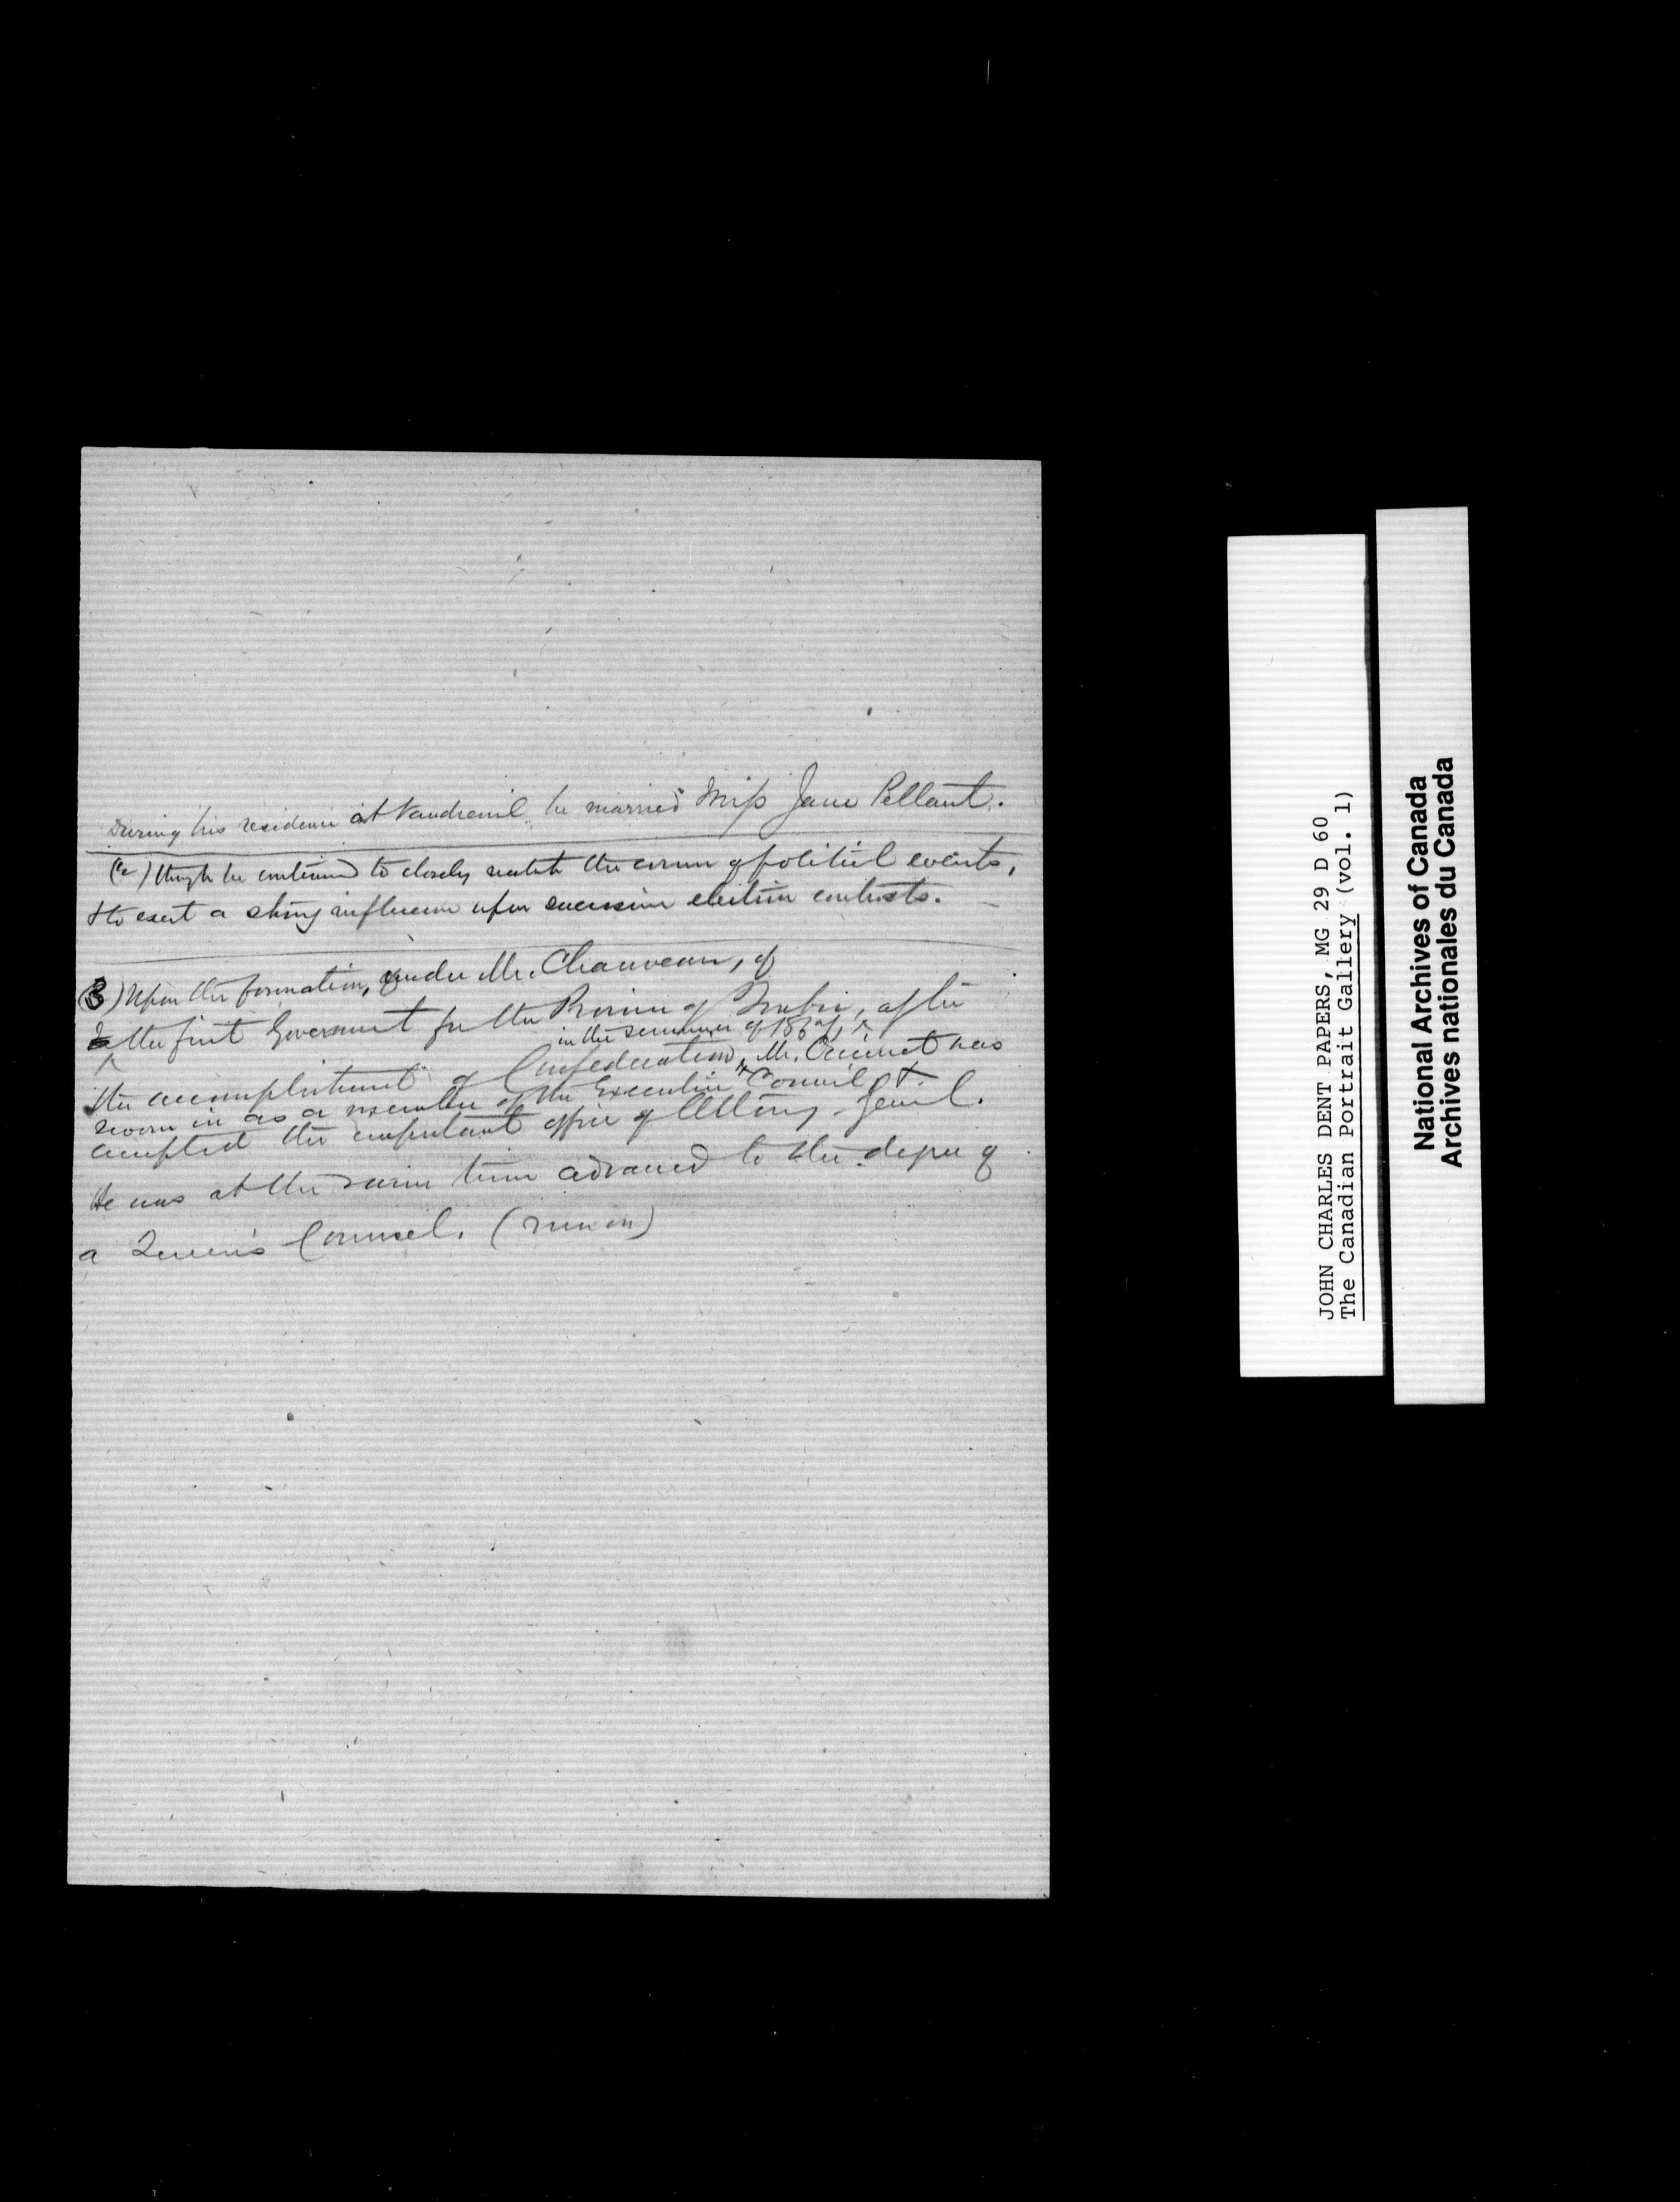 During his residence at Vaudreuil he married Miss Jane Pellant.
(2) though he continued to closely watch the course of political events,
& to exert a strong influence upon successive election contests.
(3) Upon the formation, under Mr. Chauveau, of
the first Government for the Province of Quebec, after
in the summer of 1867,
the accomplishment of Confederation, Mr. Ouimet was
sworn in as a member of the Executive Council, &
accepted the important office of Attorney-General.
He was at the same time advanced to the degree of
a Queen's Counsel. (run on)
JOHN CHARLES DENT PAPERS, MG 29 D 60
The Canadian Portrait Gallery (vol. 1)
National Archives of Canada
Archives nationales du Canada